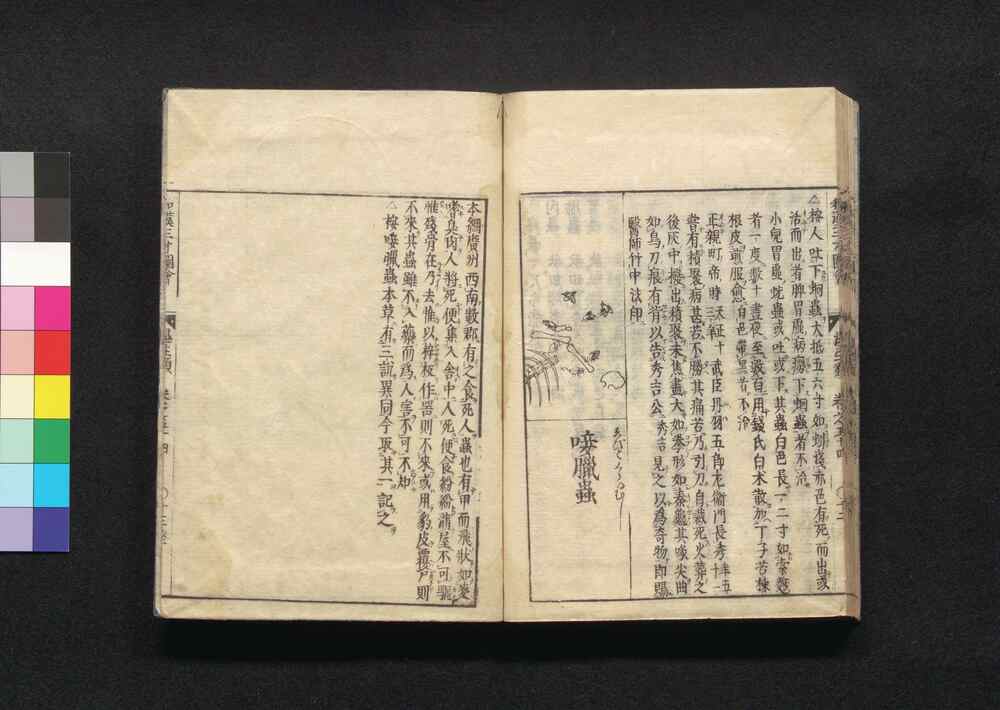 △按人吐下蚘蟲大抵五六寸如蚓淺赤色有死而出或
活而出者脾胃虛病瘍下蚘蟲者不治
小兒胃蟲蚘蟲或吐或下其蟲白色長一二寸如索麪
者一度數十晝夜至數百用錢氏白朮散加丁子苦楝
根皮煎服愈白色帶黑者不治
正親町帝時天正十三年武臣丹羽五郎左衞門長秀年五十一
嘗有積聚病甚苦不勝其痛苦乃引刀自裁死火葬之
後灰中撥出積聚未焦盡大如拳形如秦龜其喙尖曲
如鳥刀痕有背以告秀吉公秀吉見之以爲奇物即賜
醫師竹中法印
唼臘蟲
本綱廣州西南數郡有之食死人蟲也有甲而飛狀如麥
嗜臭肉人將死便集入舍中人死便食紛紛滿屋不可驅
惟殘骨在乃去惟以梓板作器則不來或用豹皮覆尸則
不來其蟲雖不入藥而爲人害不可不知
△按唼臘蟲本草有三說異同今取其一記之
和漢三才圖會